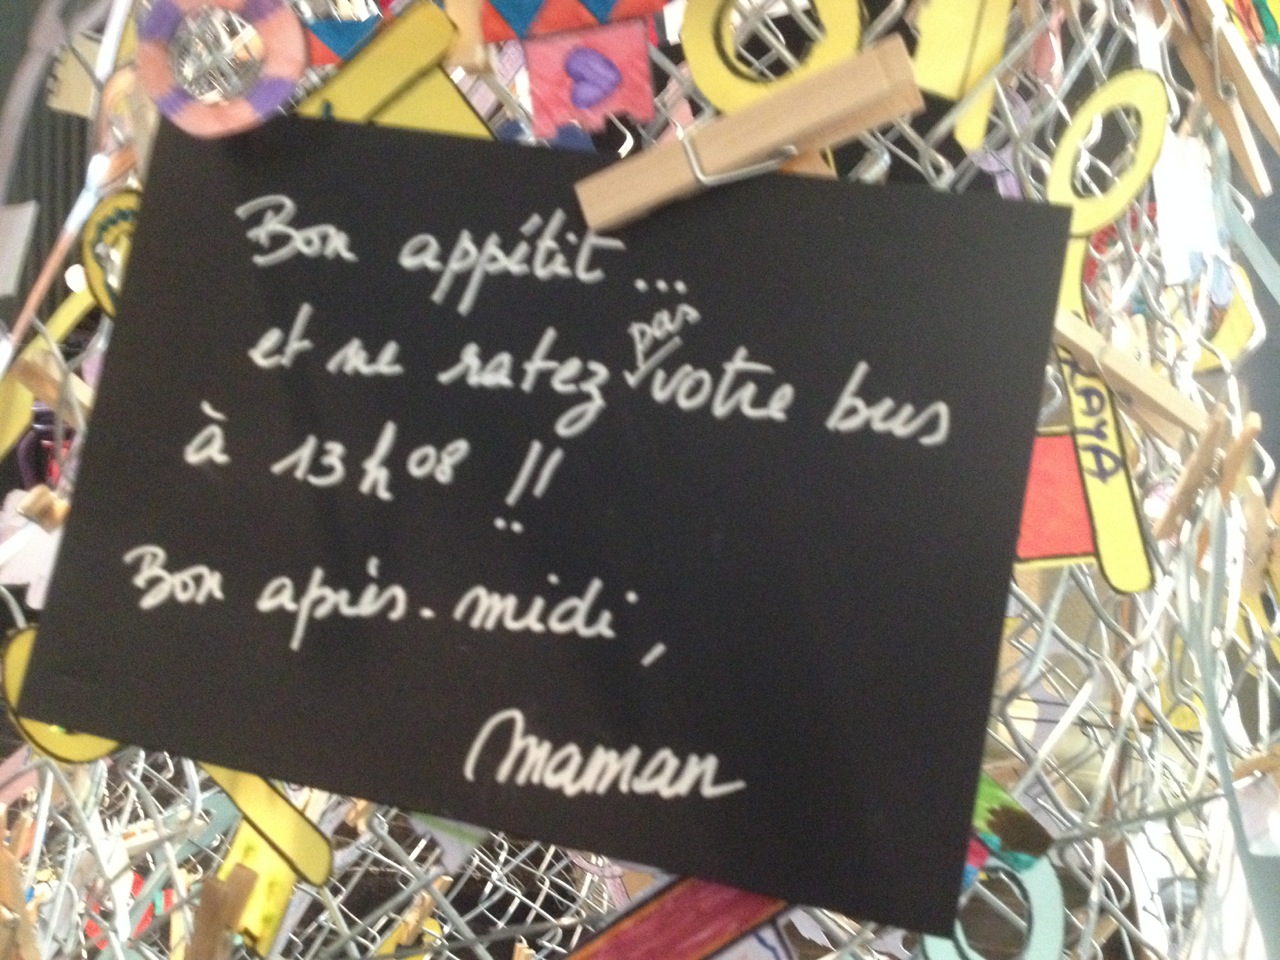 Bon appétit...
et ne ratez pas votre bus
à 13h08 !!
Bon après-midi,
Maman
LAYA